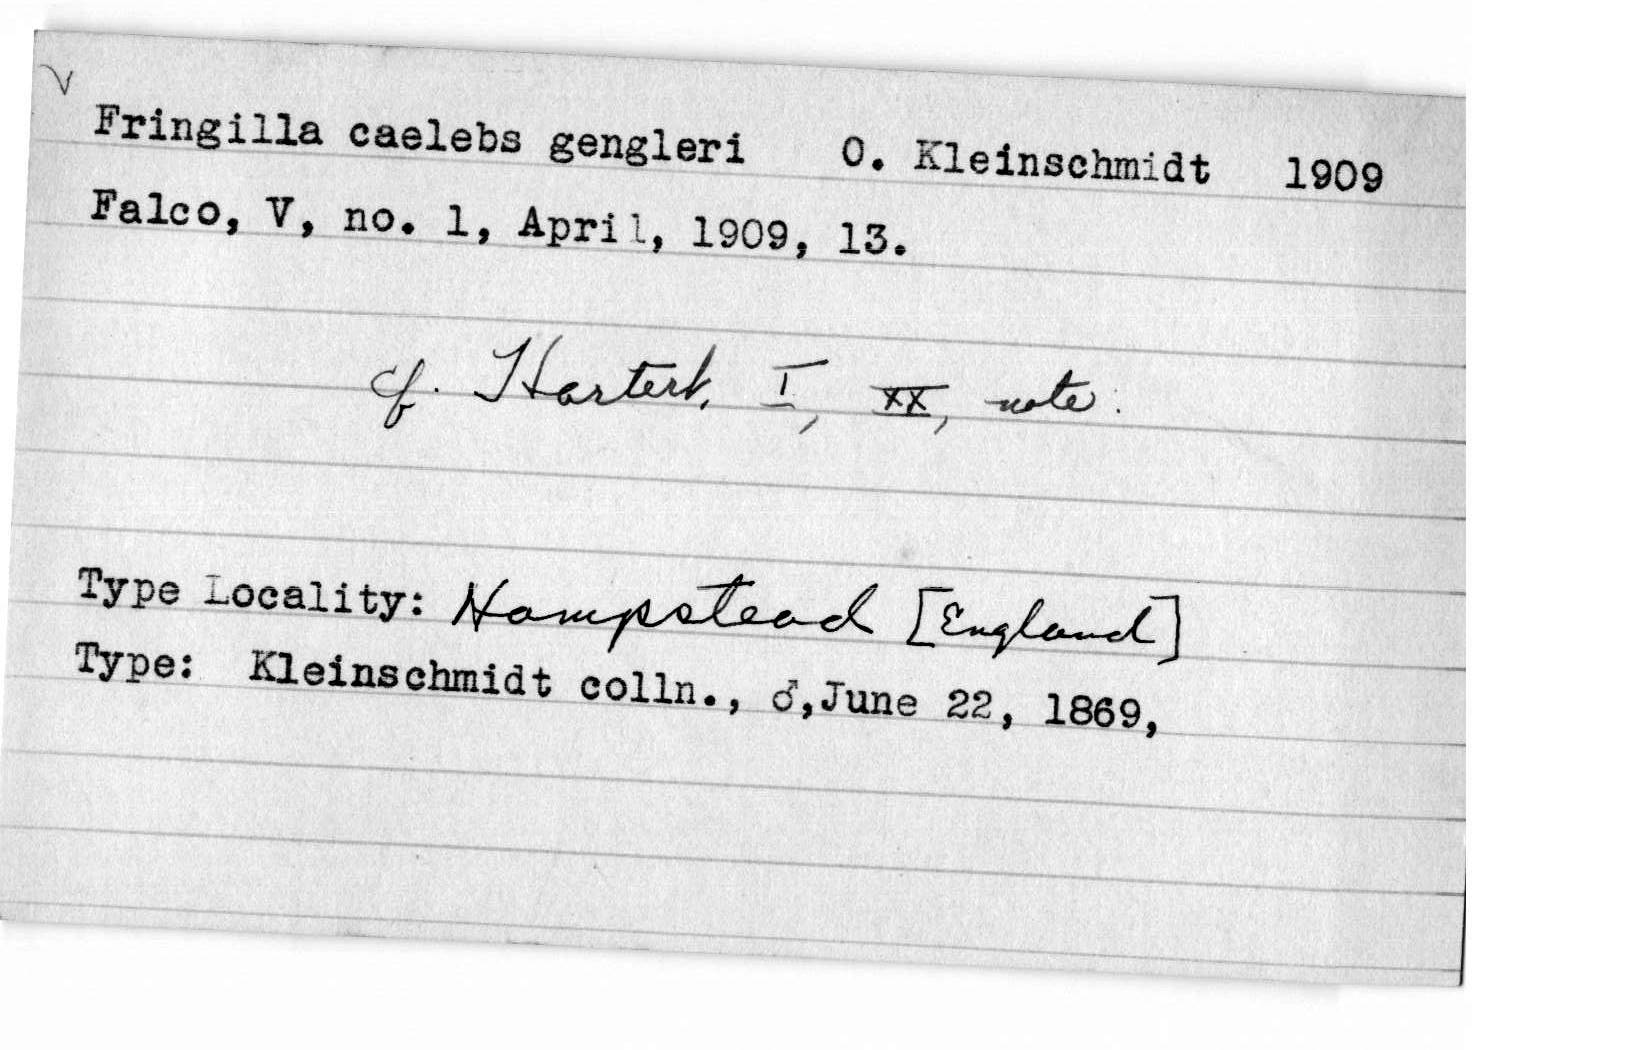 √
Fringilla caelebs gengleri O. Kleinschmidt 1909
Falco, V, no. 1, April, 1909, 13.
cf. Hartert, I, XX, note.
Type Locality: Hampstead [England]
Type: Kleinschmidt colln., ♂,June 22, 1869,